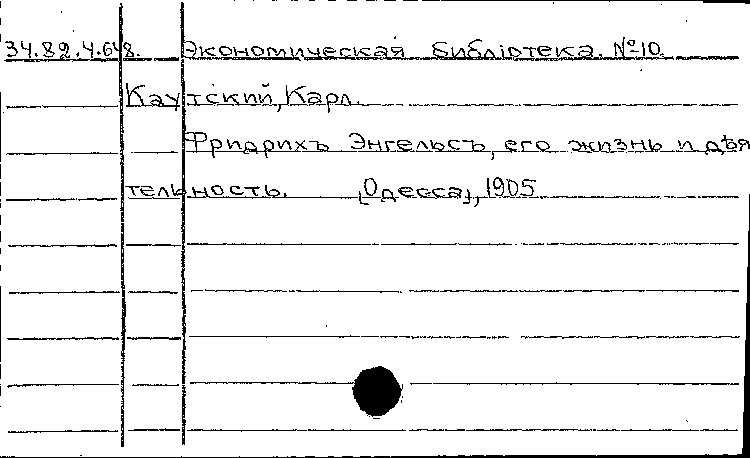 34.82.4.648. Экономическая Библіотека. №10.
Каутский, Карл.
Фридрихъ Энгельсъ, его жизнь и дѣя
тельность. [Одесса], 1905